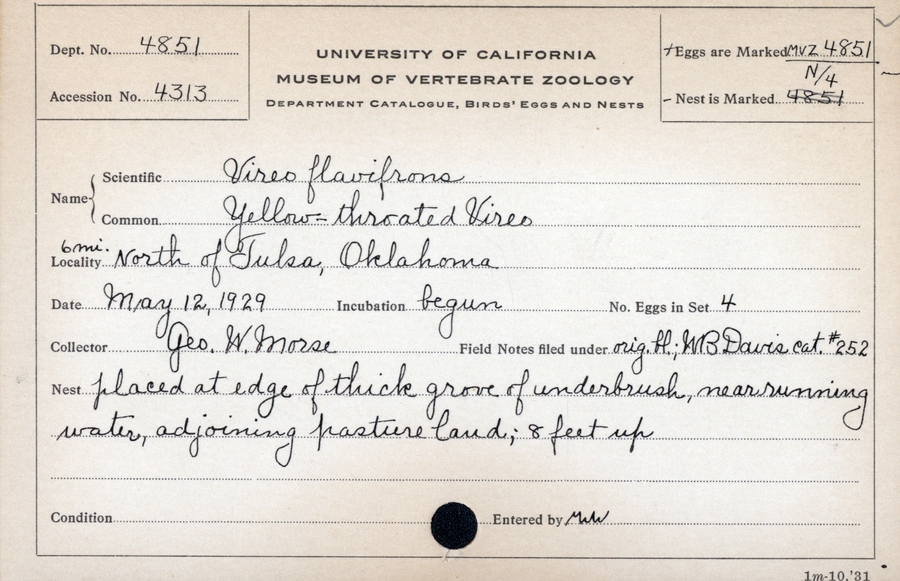 Dept. No. 4851
Accession No. 4313
UNIVERSITY OF CALIFORNIA
MUSEUM OF VERTEBRATE ZOOLOGY
DEPARTMENT CATALOGUE, BIRDS' EGGS AND NESTS
+Eggs are Marked MVZ 4851
N/4
- Nest is Marked 4851
Name
Scientific Vireo flavifrons
Common Yellow-throated Vireo
6 mi.
Locality North of Tulsa, Oklahoma
Date May 12, 1929 Incubation begun No. Eggs in Set 4
Collector Geo. W. Morse Field Notes filed under orig. bl.; WB Davis cat. #252
Nest placed at edge of thick grove of underbrush, near running
water, adjoining pasture land; 8 feet up
Condition Entered by
1m-10,'31